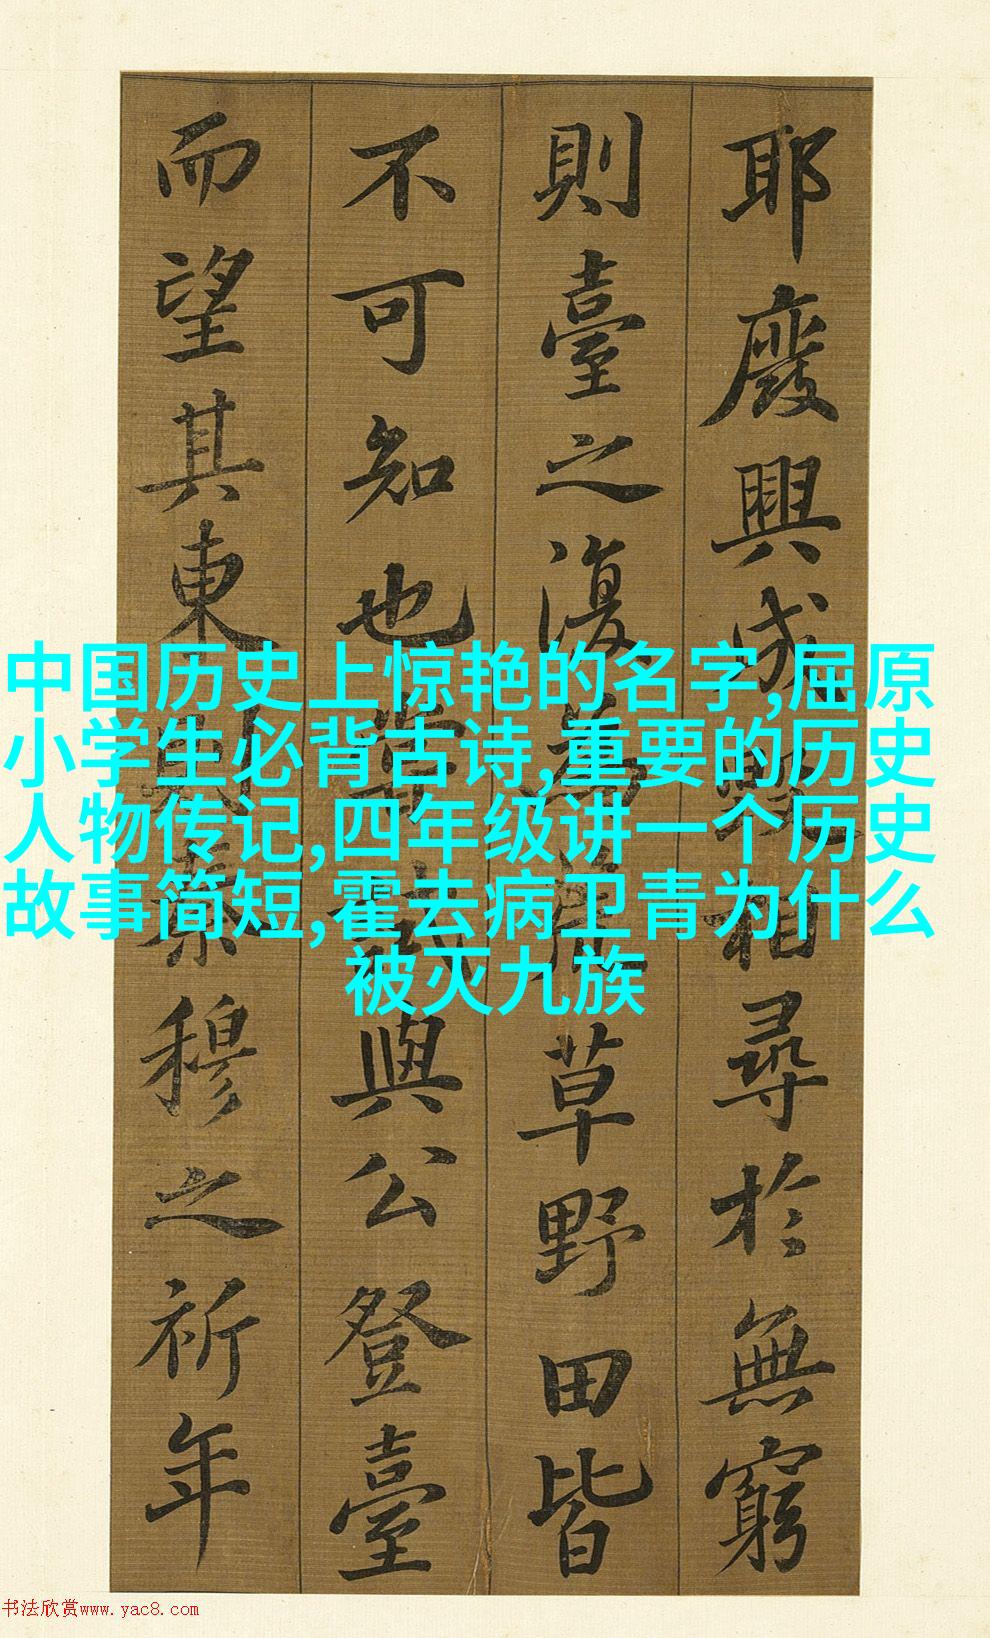 耶廢興成毀相尋於無窮
則臺之復為荒草野田皆
不可知也嘗試與公登臺
而望其東則秦穆之祈年
中国历史上惊艳的名字,屈原
小学生必背古诗,重要的历史
人物传记,四年级讲一个历史
故事简短,霍去病卫青为什么
被灭九族
书法欣赏www.yac8.com